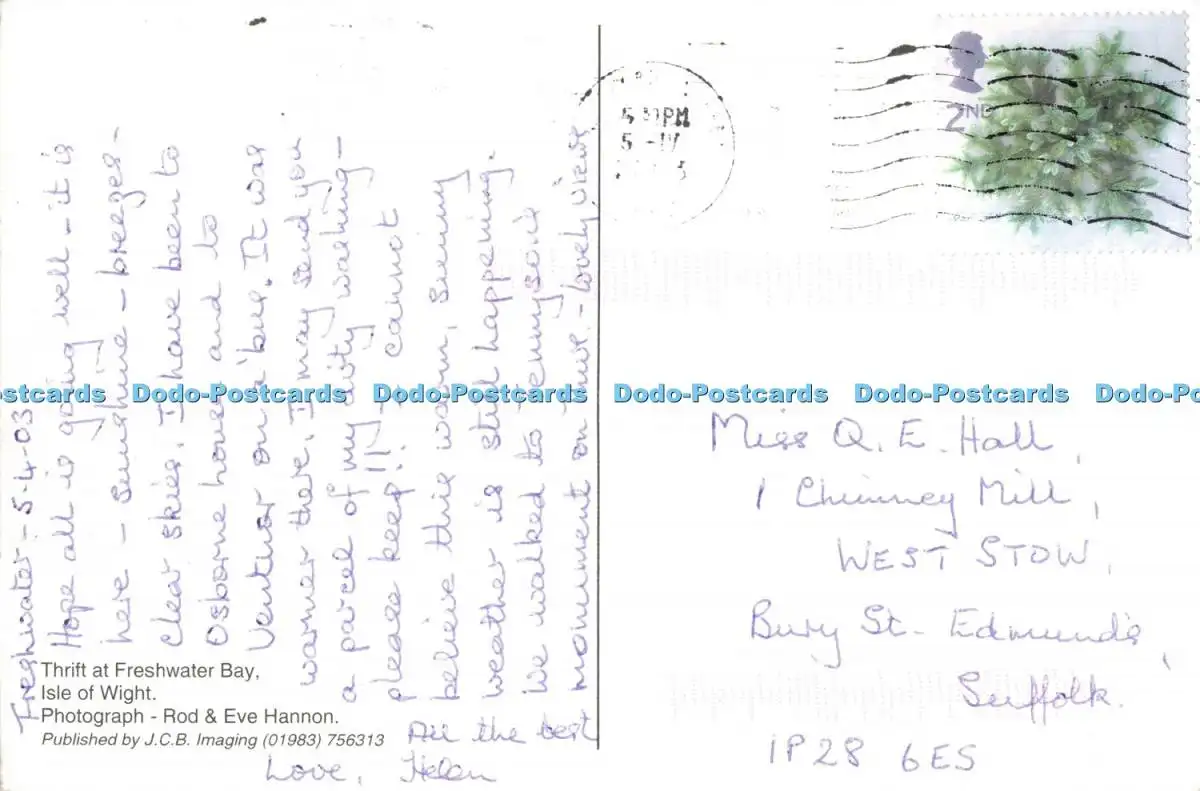 Freshwater - 5-4-03
Hope all is going well - it is
here - sunshine - breezes -
clear skies. I have been to
Osborne house and to
Ventnor on a 'bus. It was
warmer there. I may send you
a parcel of my dirty washing -
please keep!! I cannot
believe this warm, sunny
weather is still happening.
We walked to Tennyson's
monument on - lovely views
All the best
Love, Helen
Thrift at Freshwater Bay,
Isle of Wight.
Photograph - Rod & Eve Hannon.
Published by J.C.B. Imaging (01983) 756313
PM
2ND
Miss Q. E. Hall,
1 Chimney Mill,
WEST STOW,
Bury St. Edmunds,
Suffolk.
IP28 6ES
Dodo-Postcards Dodo-Postcards Dodo-Postcards Dodo-Postcards